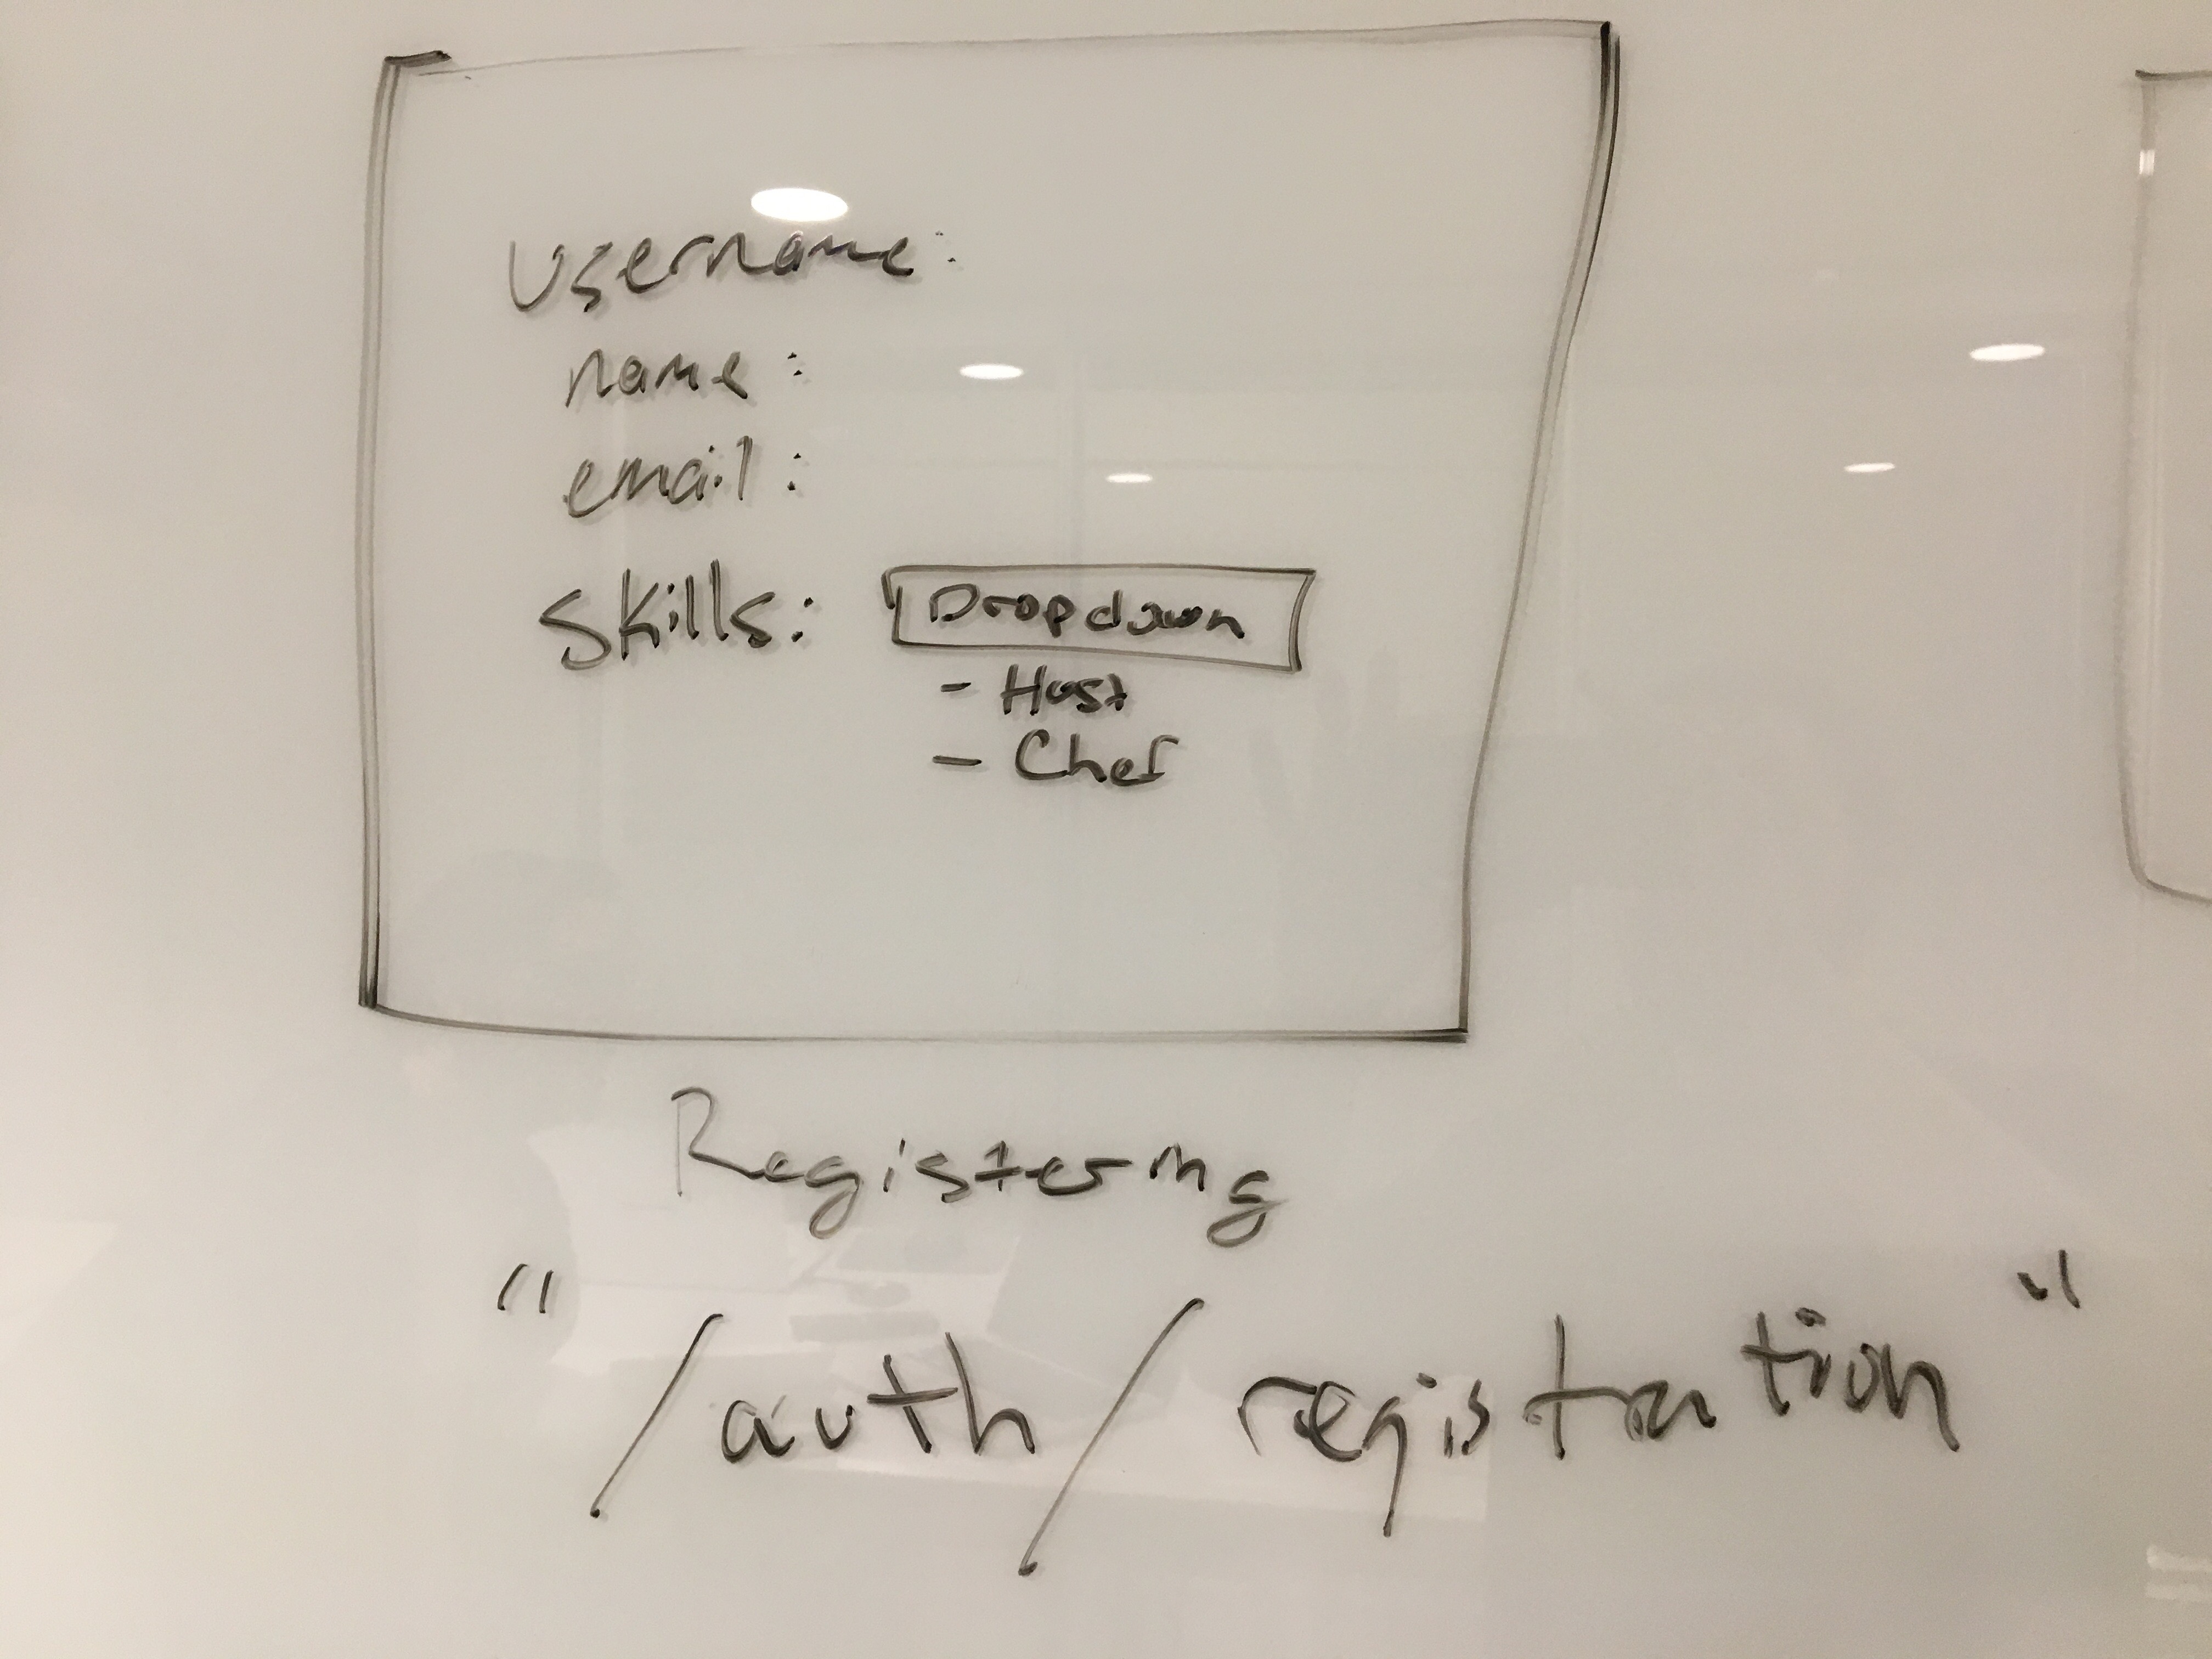 Username:
name:
email:
Skills: Dropdown
- Host
- Chef
Registering
"/auth/registration"